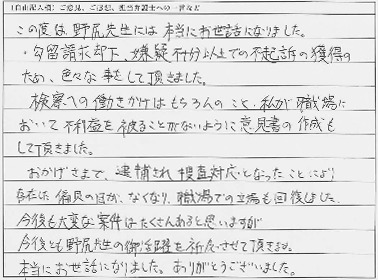 (自由記入欄:ご意見、ご感想、担当弁護士への一言など)
この度は、野尻先生には本当にお世話になりました。
・勾留請求却下、嫌疑不十分以上での不起訴の獲得の
ため、色々な事をして頂きました。
検察への働きかけはもちろんのこと、私が職場に
おいて不利益を被ることがないように意見書の作成も
して頂きました。
おかげさまで、逮捕され捜査対応となったことにより
存在した のほか、なくなり、職場での立場も回復しました。
今後も大変な案件はたくさんあると思いますが
今後とも野尻先生の御活躍を祈念させて頂きます。
本当にお世話になりました。ありがとうございました。